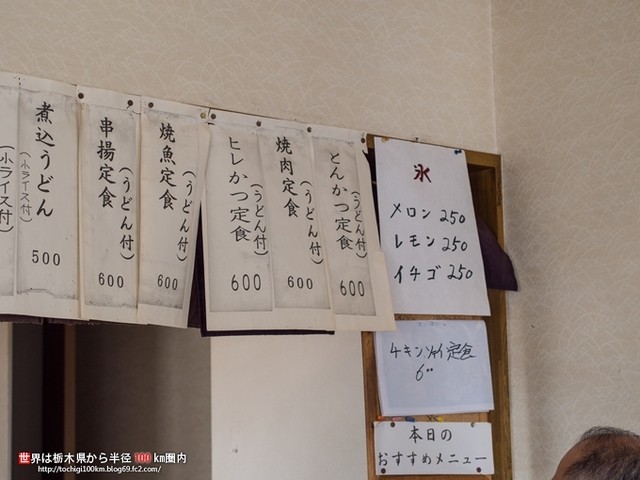 とんかつ定食
(うどん付)
600
焼肉定食
(うどん付)
600
ヒレかつ定食
(うどん付)
600
焼魚定食
(うどん付)
600
串揚定食
(うどん付)
600
煮込うどん
(小ライス付)
500
(小ライス付)
氷
メロン 250
レモン 250
イチゴ 250
チキンソテイ定食
6°°
本日の
おすすめメニュー
世界は栃木県から半径 100 km圏内
http://tochigi100km.blog69.fc2.com/